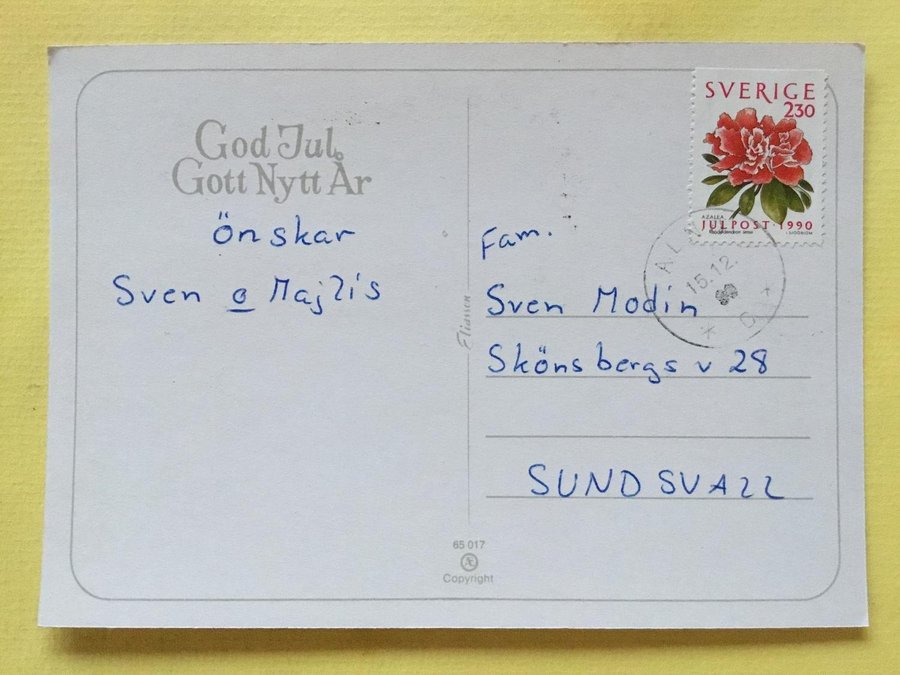 God Jul
Gott Nytt År
önskar
Sven o Majlis
Eliassen
65 017
Copyright
SVERIGE
230
AZALEA
JULPOST·1990
15.12.
Fam.
Sven Modin
Skönsbergs v 28
SUNDSVALL